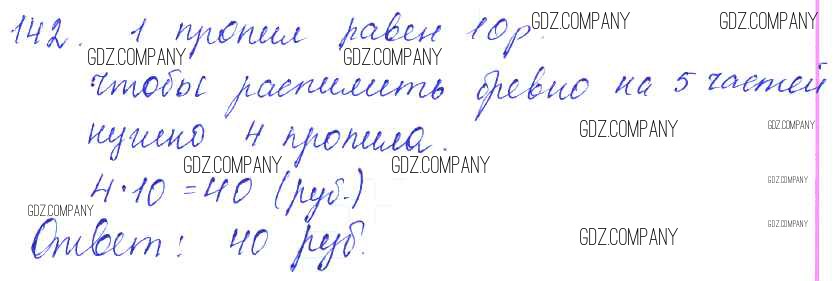 142. 1 пропил равен 10р. GDZ.COMPANY GDZ.COMPANY
GDZ.COMPANY GDZ.COMPANY
чтобы распилить бревно на 5 частей
нужно 4 пропила. GDZ.COMPANY GDZ.COMPANY
GDZ.COMPANY GDZ.COMPANY
4·10=40 (руб.) GDZ.COMPANY
GDZ.COMPANY
Ответ: 40 руб. GDZ.COMPANY GDZ.COMPANY